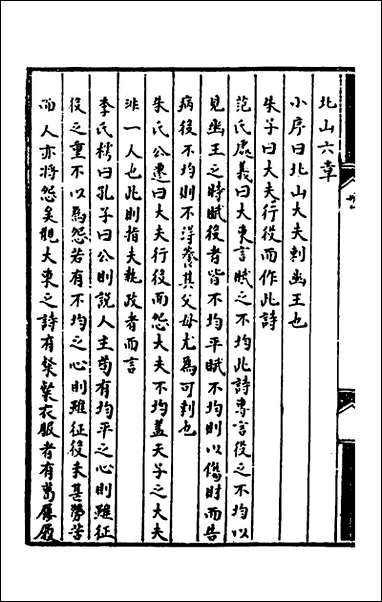 北山六章
小序曰北山大夫刺幽王也
朱子曰大夫行役而作此詩
范氏處義曰大東言賦之不均此詩專言役之不均以
見幽王之時賦役者皆不均平賦不均則以傷財而告
病役不均則不得養其父母尤為可刺也
朱氏公遷曰大夫行役而怨大夫不均蓋天子之大夫
非一人也此則指夫執政者而言
李氏樗曰孔子曰公則説人主苟有均平之心則雖征
役之重不以為怨若有不均之心則雖征役未甚勞苦
而人亦將怨矣觀大東之詩有粲粲衣服者有葛屨履